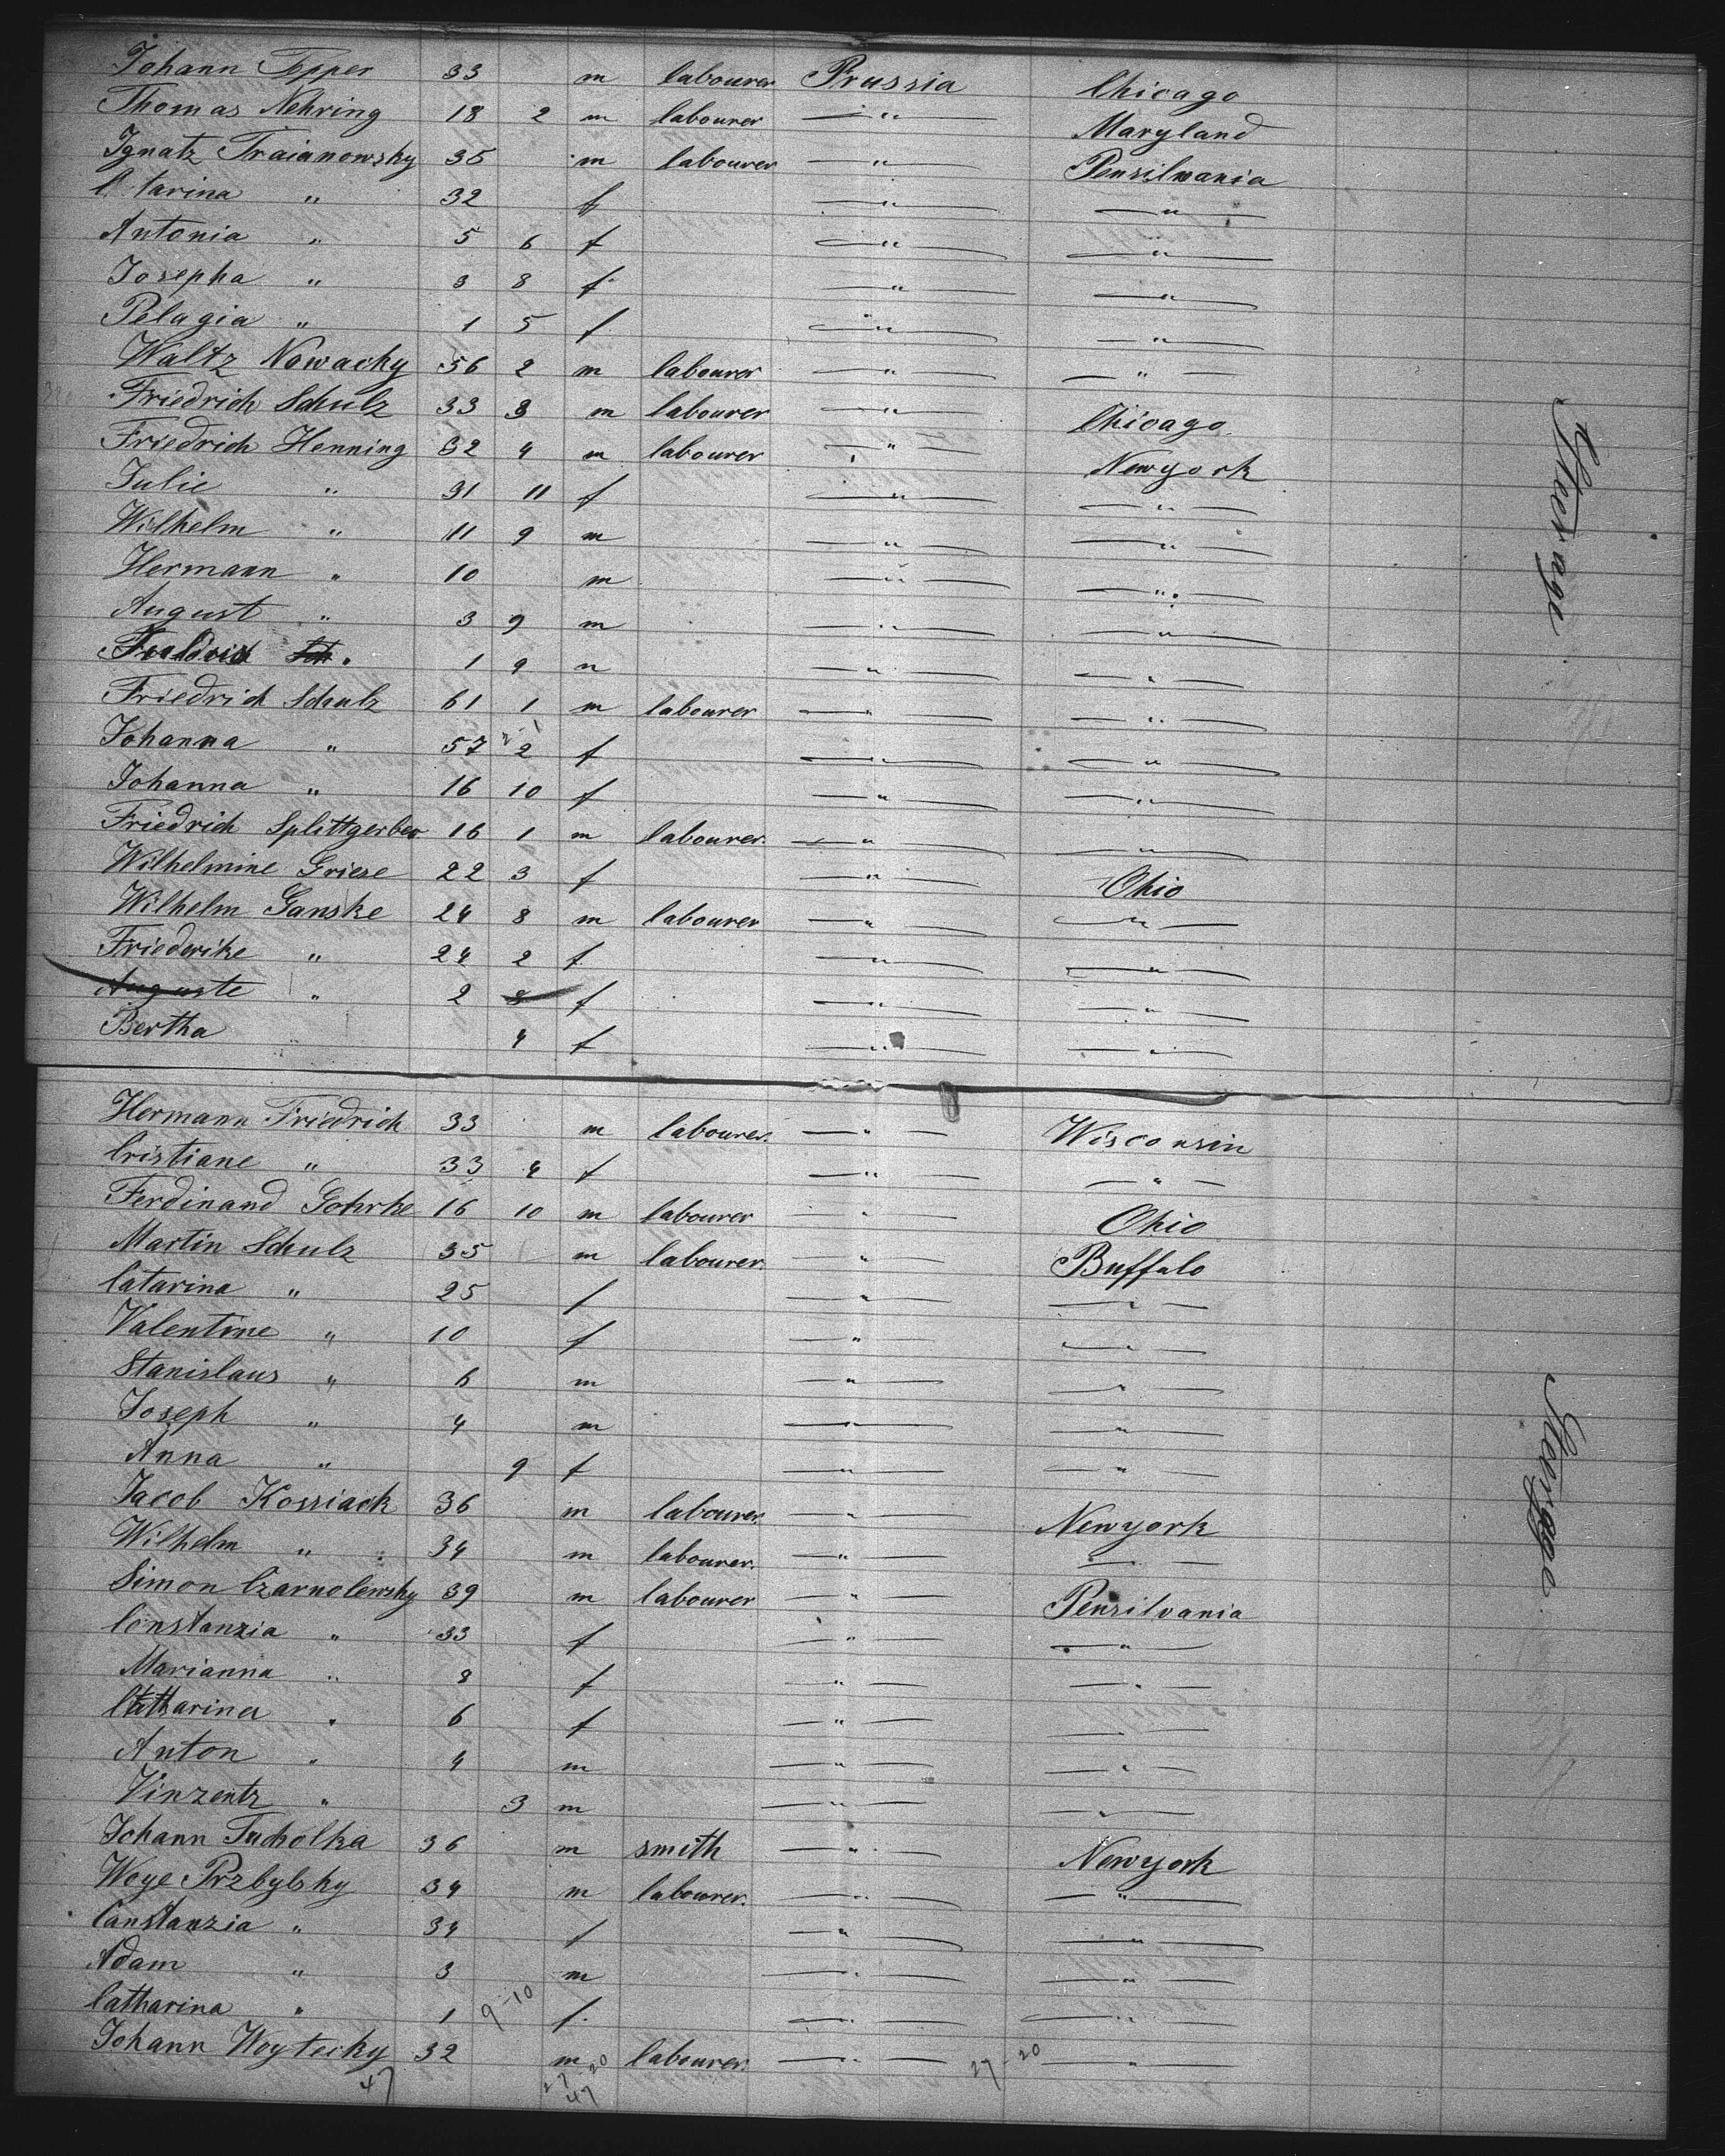 Johann Tepper 33 m labourer Prussia Chicago
Thomas Nehring 18 2 m labourer —"— Maryland
Ignatz Traianowsky 35 m labourer —"— Pensilwania
C tarina " 32 f —"— —"—
Antonia " 5 6 f —"— —"—
Josepha " 3 8 f —"— —"—
Pelagia " 1 5 f —"— —"—
Waltz Nowacky 56 2 m labourer —"— —"—
Friedrich Schulz 33 3 m labourer —"— Chicago
Friedrich Henning 32 4 m labourer —"— Newyork
Julie " 31 11 f —"— —"—
Wilhelm " 11 9 m —"— —"—
Hermann " 10 m —"— —"—
August " 3 9 m —"— —"—
" 1 9 m —"— —"—
Friedrich Schulz 61 1 m labourer —"— —"—
Johanna " 57 2 f —"— —"—
Johanna " 16 10 f —"— —"—
Friedrich Splittgerber 16 1 m labourer —"— —"—
Wilhelmine Griese 22 3 f —"— Ohio
Wilhelm Ganske 24 8 m labourer —"— —"—
Friederike " 24 2 f —"— —"—
Auguste " 2 8 f —"— —"—
Bertha 4 f —"— —"—
Steerage
Hermann Friedrich 33 m labourer —"— Wisconsin
Cristiane " 33 4 f —"— —"—
Ferdinand Gohrke 16 10 m labourer —"— Ohio
Martin Schulz 35 m labourer —"— Buffalo
Catarina " 25 f —"— —"—
Valentine " 10 f —"— —"—
Stanislaus " 6 m —"— —"—
Joseph " 4 m —"— —"—
Anna " 9 f —"— —"—
Jacob Kossiack 36 m labourer —"— Newyork
Wilhelm " 34 m labourer —"— —"—
Simon Czarnolewsky 39 m labourer —"— Pensilvania
Constanzia " 33 f —"— —"—
Marianna " 8 f —"— —"—
Catharina " 6 f —"— —"—
Anton " 4 m —"— —"—
Vinzentz " 3 m —"— —"—
Johann Tucholka 36 m smith —"— Newyork
Woye Przbylsky 34 m labourer —"— —"—
Constanzia " 34 f —"— —"—
Adam " 3 m —"— —"—
Catharina " 1 9-10 f —"— —"—
Johann Woytecky 32 m labourer —"— —"—
47 27-20 27-20
47
Steerage